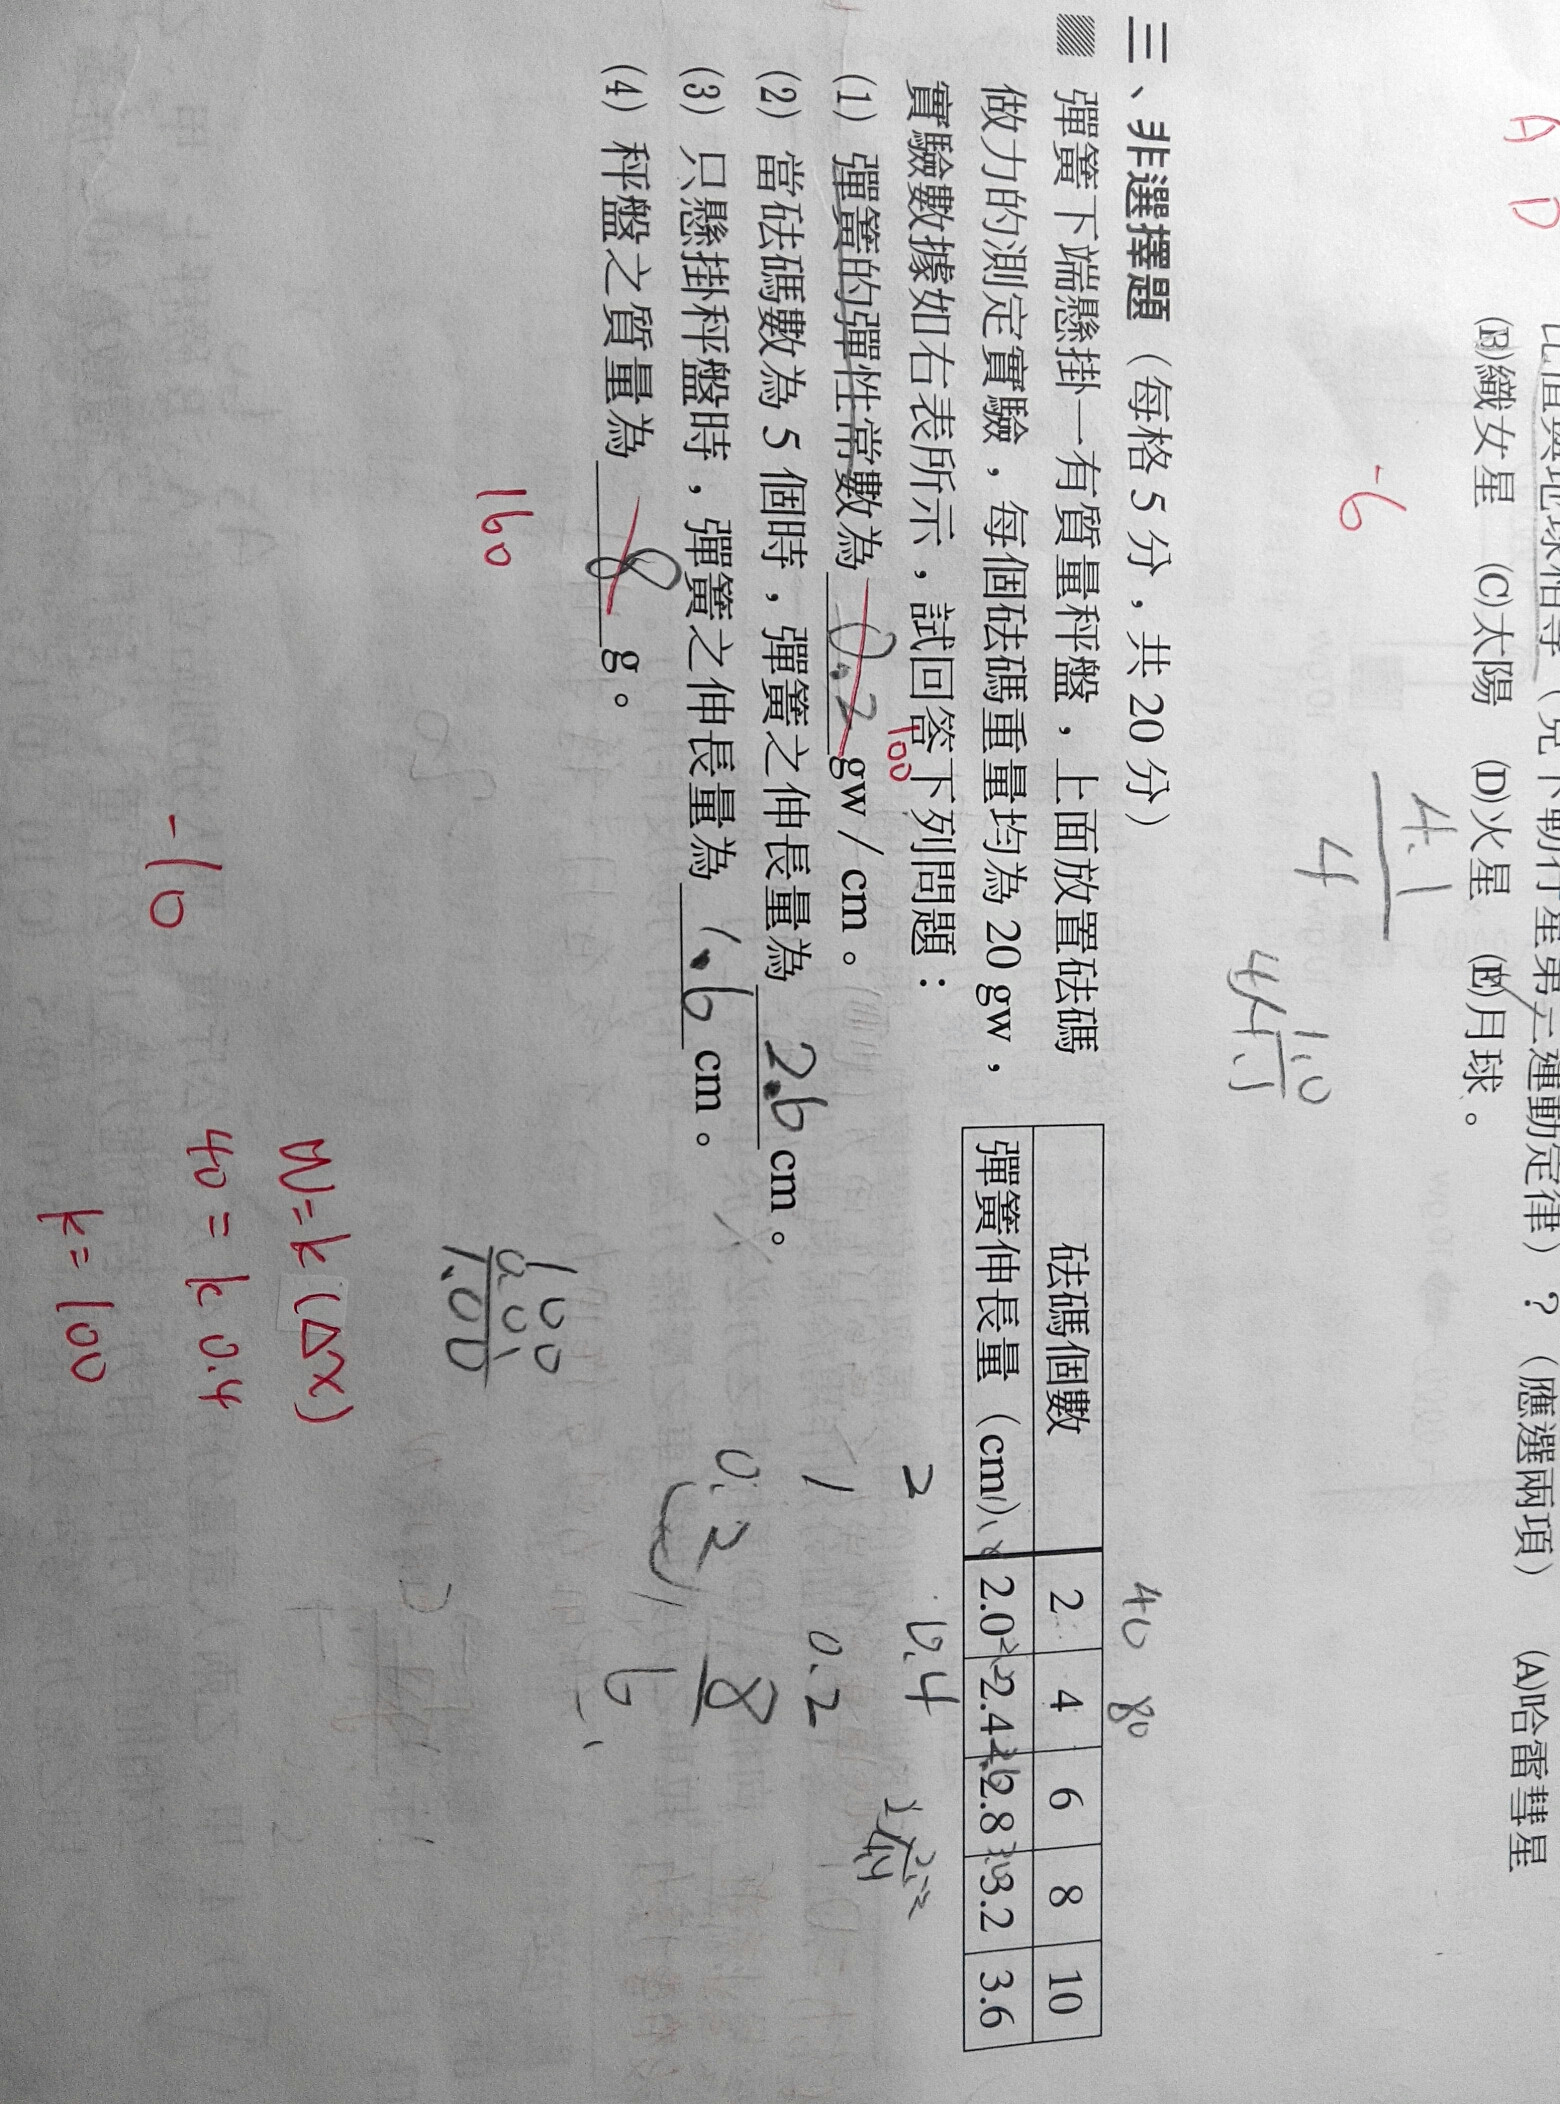 A D
比值與地球相等（克卜勒行星第三運動定律）？（應選兩項） (A)哈雷彗星
(B)織女星 (C)太陽 (D)火星 (E)月球。
-6
4.1
4
1.0
三、非選擇題（每格 5 分，共 20 分）
彈簧下端懸掛一有質量秤盤，上面放置砝碼
做力的測定實驗，每個砝碼重量均為 20 gw，
實驗數據如右表所示，試回答下列問題：
40 80
砝碼個數 2 4 6 8 10
彈簧伸長量（cm） 2.0 2.4 2.8 3.2 3.6
100
(1) 彈簧的彈性常數為 0.2 gw / cm。
(2) 當砝碼數為 5 個時，彈簧之伸長量為 2.6 cm。
(3) 只懸掛秤盤時，彈簧之伸長量為 1.6 cm。
(4) 秤盤之質量為 8 g。
160
2 0.4
1 0.2
0.2 8
6
100
0.01
1.00
-10
W=k(Δx)
40 = k 0.4
k = 100